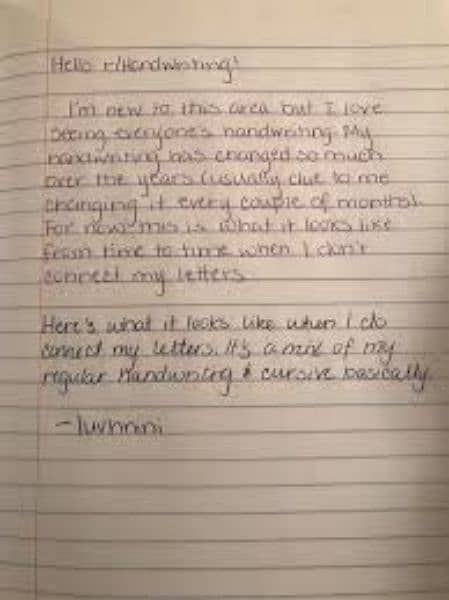 Hello r/Handwriting!
I'm new to this area but I love
seeing everyone's handwriting. My
handwriting has changed so much
over the years (usually due to me
changing it every couple of months).
For now this is what it looks like
from time to time when I don't
connect my letters.
Here's what it looks like when I do
connect my letters. It's a mix of my
regular handwriting & cursive basically.